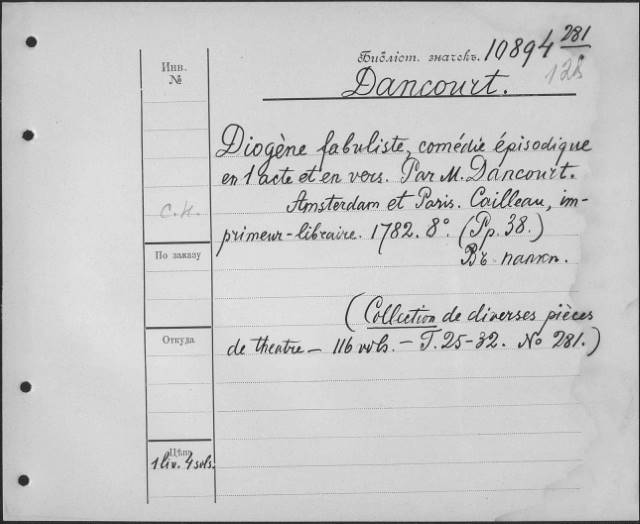 Инв.
№
Библіот. значекъ. 10894 281
12
Dancourt.
Diogène fabuliste, comédie épisodique
en 1 acte et en vers. Par M. Dancourt.
Amsterdam et Paris. Cailleau, im-
primeur-libraire. 1782. 8°. (Pp. 38.)
Въ папкѣ.
с.н.
По заказу
(Collection de diverses pièces
de theatre — 116 vols. — T. 25-32. No 281.)
Откуда
Цѣна
1 liv. 4 sols.